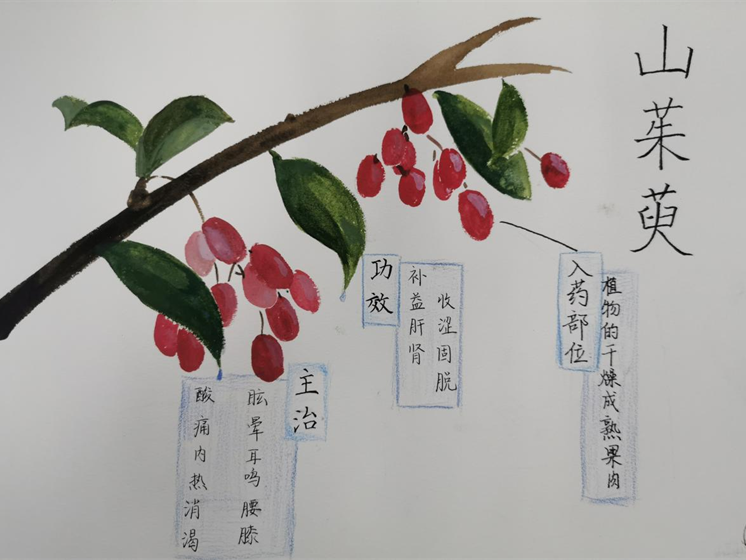 山茱萸
入药部位
植物的干燥成熟果肉
功效
补益肝肾
收涩固脱
主治
眩晕耳鸣腰膝
酸痛内热消渴